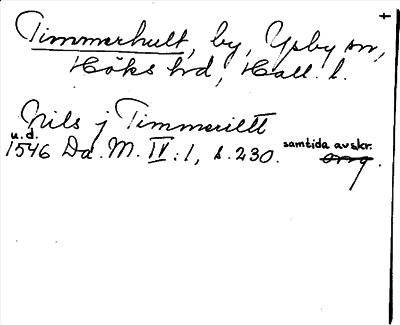 +
Timmerhult, by, Ysby sn,
Höks hd, Hall. l.
Nils j Timmeriltt
u.d.
1546 Da. M. IV:1, s. 230. samtida avskr.
orig.